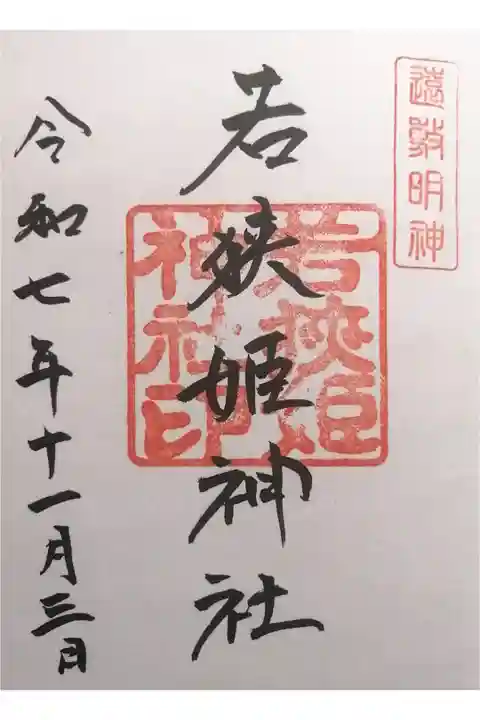 遠敷明神
若狹姫神社
若狹姫神社印
令和七年十一月三日